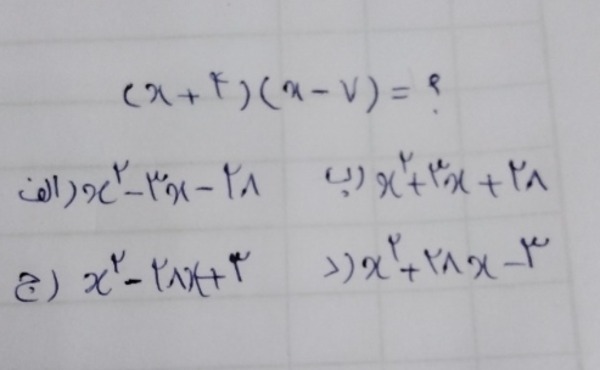 (x + ۴)(x - ۷) = ؟
الف) x² - ۳x - ۲۸ ب) x² + ۳x + ۲۸
ج) x² - ۲۸x + ۳ د) x² + ۲۸x - ۳